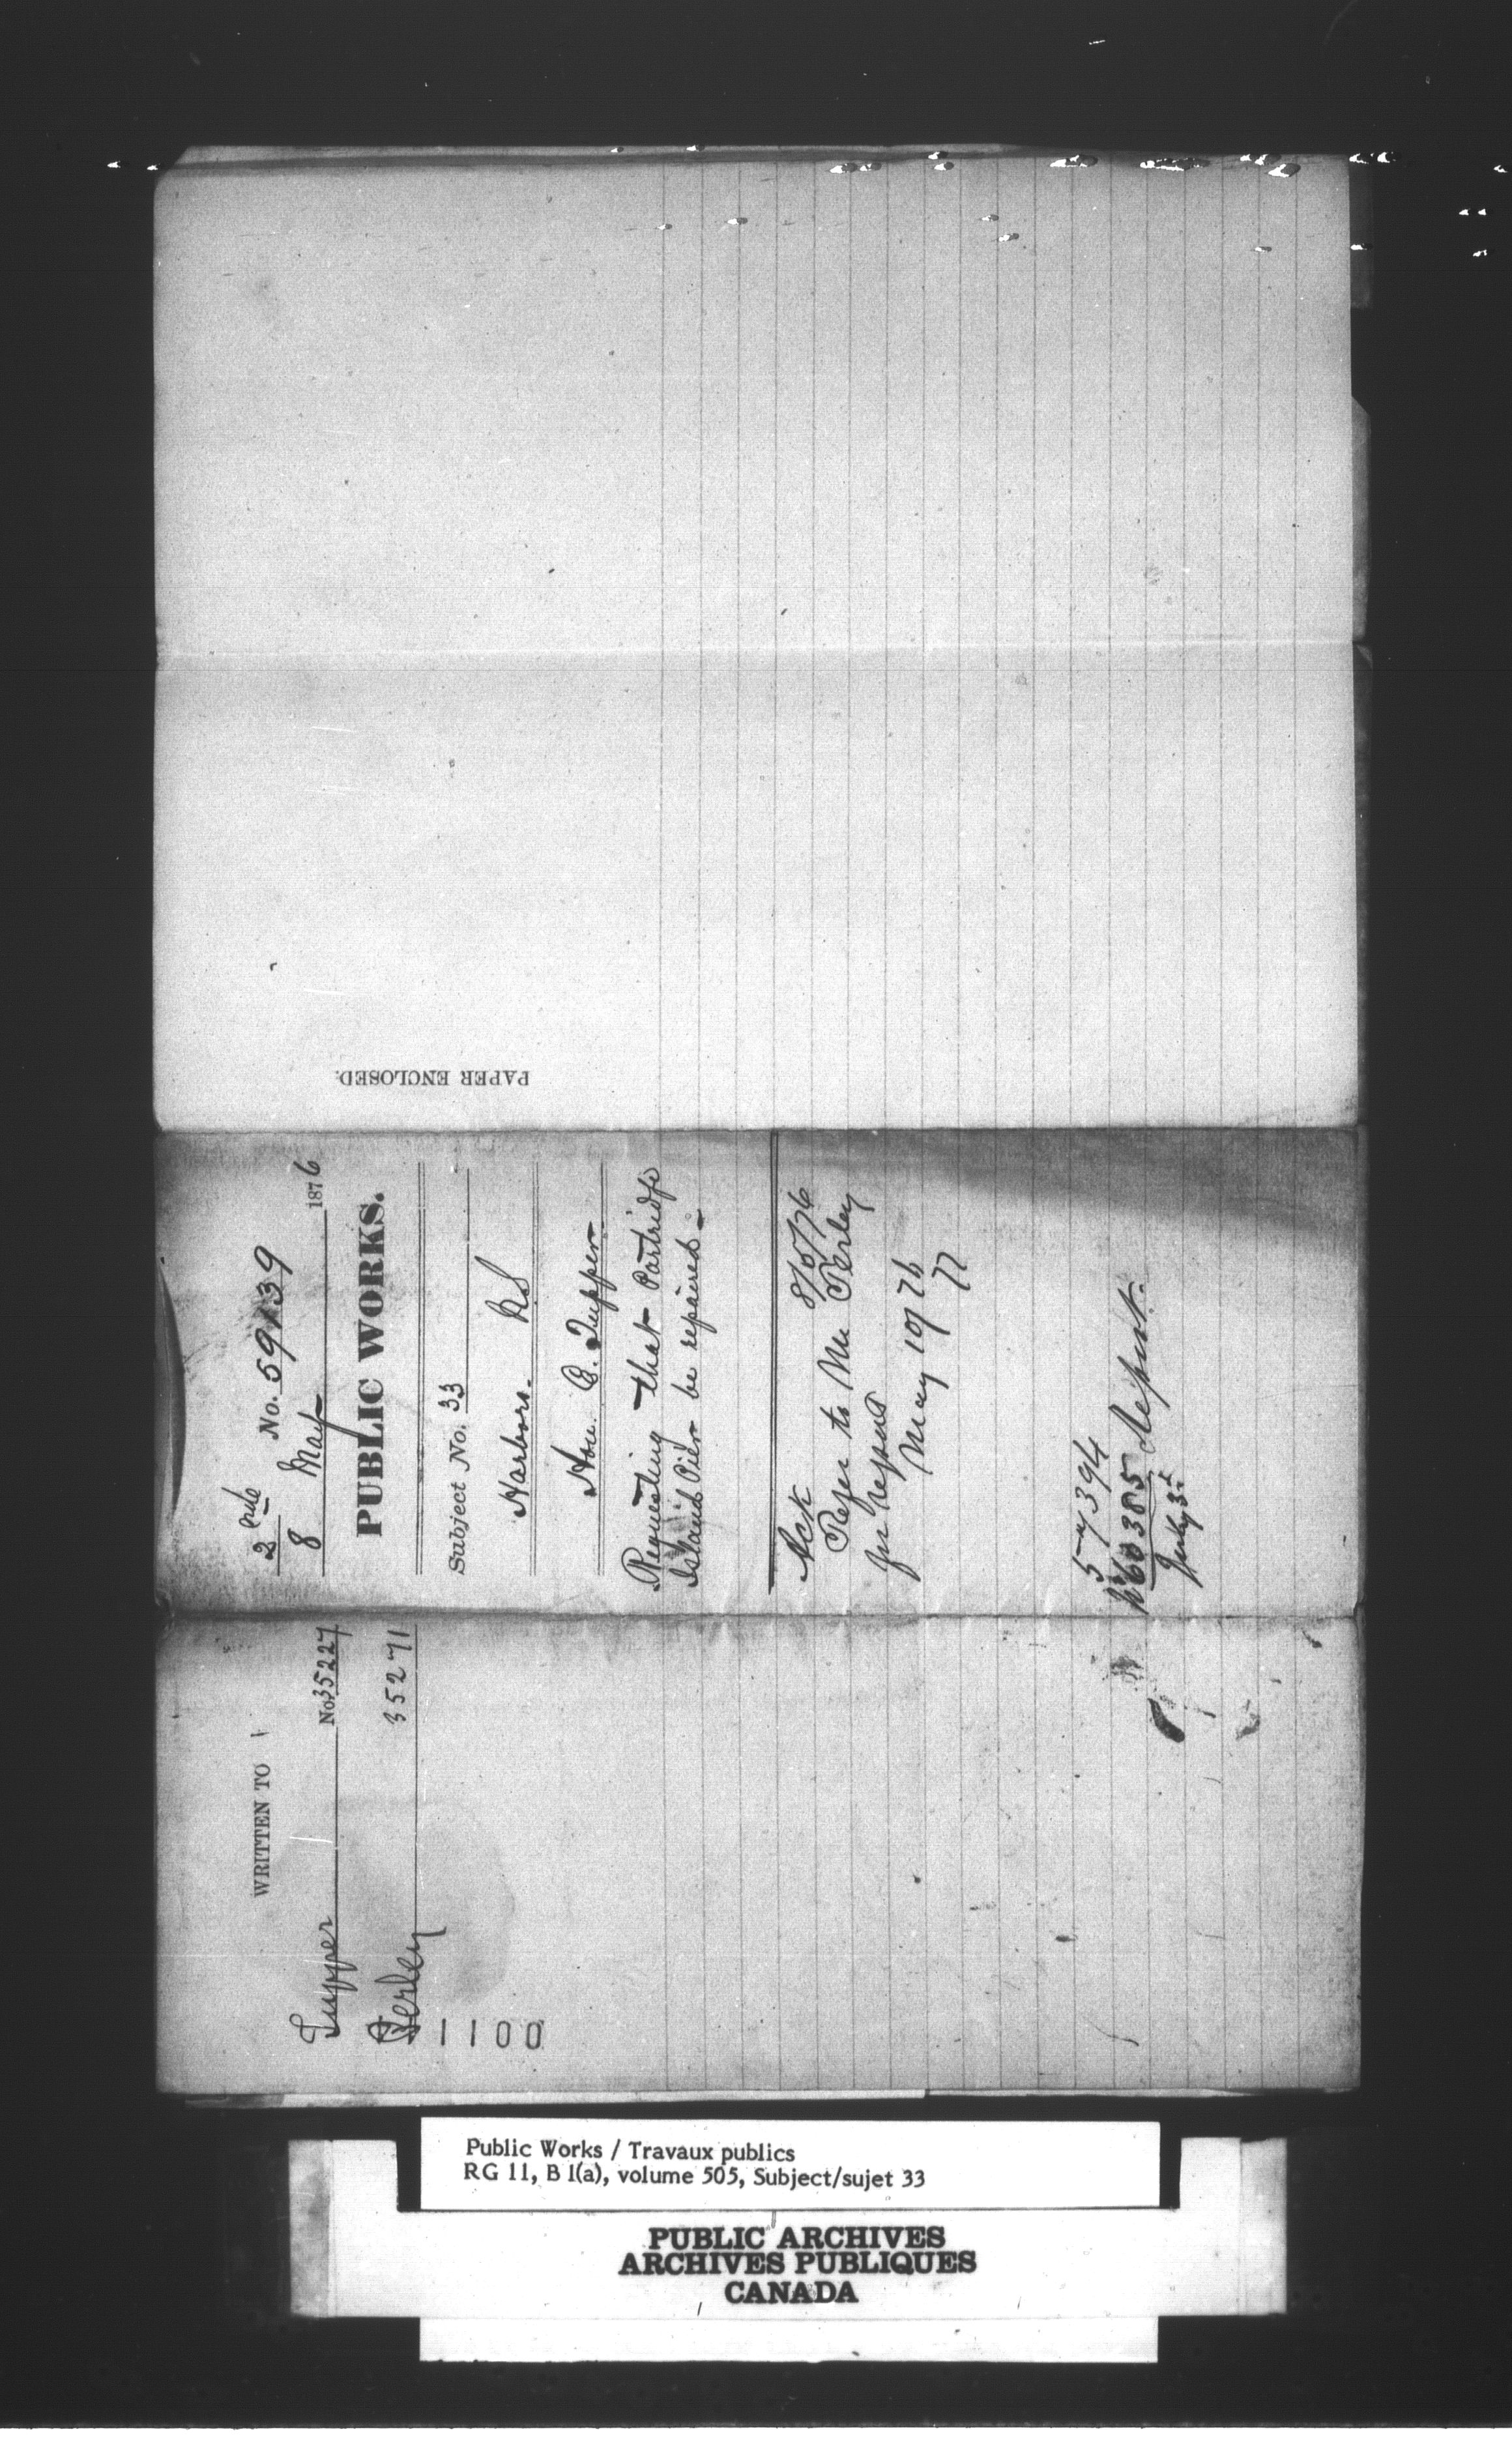 PAPER ENCLOSED.
2 enle No. 59139
8 May 1876
PUBLIC WORKS.
Subject No. 33
Harbors. N.S
Hon. C. Tupper
Requesting that Partridge
Island Pier be repaired.
Ack 8/5/76
Refer to Mr Perley
for report
May 10/76
77
57394
60385 Report.
July 3
WRITTEN TO
Tupper No 35227
Perley 35271
1100
Public Works / Travaux publics
RG 11, B 1(a), volume 505, Subject/sujet 33
PUBLIC ARCHIVES
ARCHIVES PUBLIQUES
CANADA